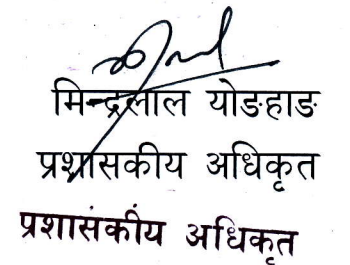 मिन्द्रलाल योङहाङ
प्रशासकीय अधिकृत
प्रशासकीय अधिकृत